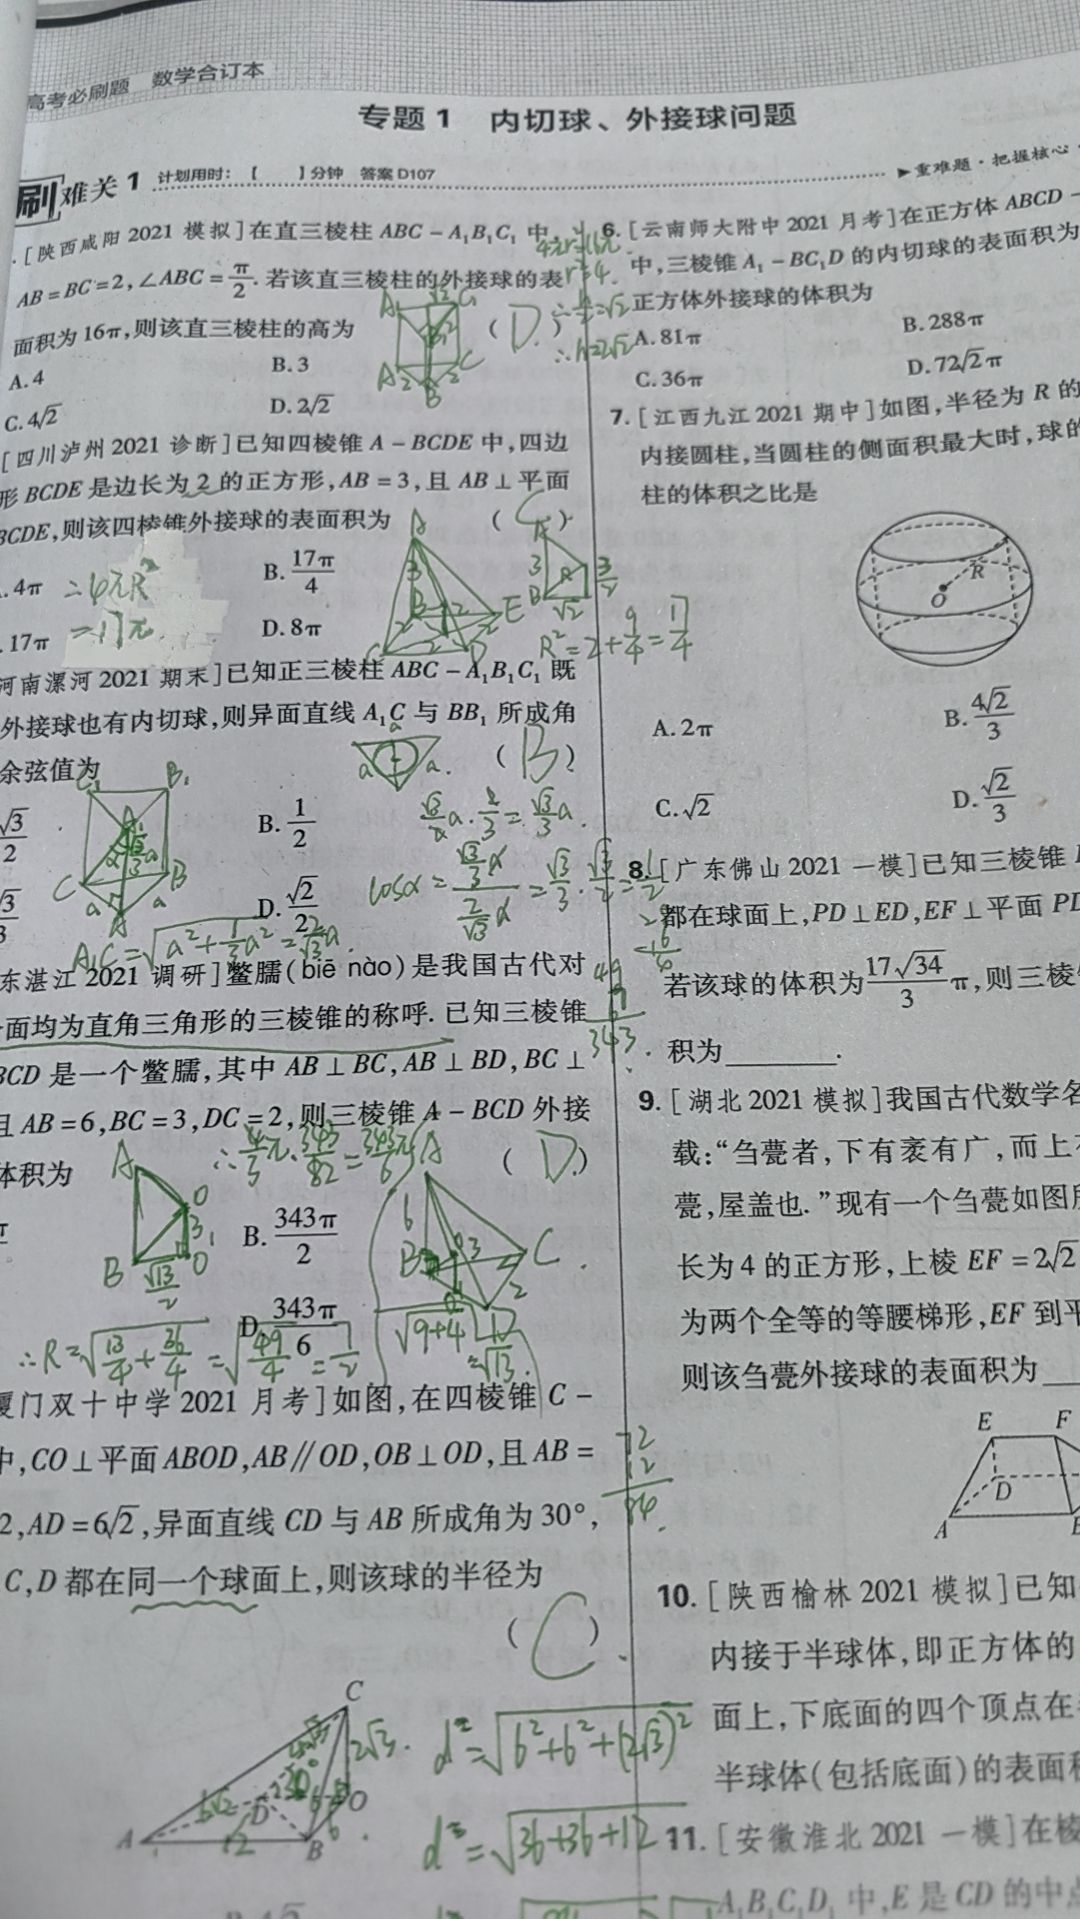 高考必刷题 数学合订本
专题1 内切球、外接球问题
刷难关1 计划用时:【 】分钟 答案D107
▶重难题·把握核心
[陕西咸阳2021模拟]在直三棱柱ABC-A₁B₁C₁中,
AB=BC=2,∠ABC=π/2.若该直三棱柱的外接球的表
面积为16π,则该直三棱柱的高为 ( D. )
A.4 B.3
C.4√2 D.2√2
4πr²=16π
r²=4.
∴h/2=√2
∴h=2√2
[四川泸州2021诊断]已知四棱锥A-BCDE中,四边
形BCDE是边长为2的正方形,AB=3,且AB⊥平面
BCDE,则该四棱锥外接球的表面积为 ( C. )
.4π =4πR² B.17π/4
.17π =17π D.8π
R²=2+9/4=17/4
河南漯河2021期末]已知正三棱柱ABC-A₁B₁C₁既
外接球也有内切球,则异面直线A₁C与BB₁所成角
余弦值为 ( B. )
√3/2 B.1/2
√3/3 D.√2/2
√3/2a·2/3=√3/3a.
A₁C=√(a²+1/3a²)=2/√3a.
东湛江2021调研]鳖臑(biē nào)是我国古代对
面均为直角三角形的三棱锥的称呼.已知三棱锥
BCD是一个鳖臑,其中AB⊥BC,AB⊥BD,BC⊥
且AB=6,BC=3,DC=2,则三棱锥A-BCD外接
体积为 ( D. )
B.343π/2
D.343π/6
∴R=√(13/4+36/4)=√(49/4)=7/2
√(9+4)
=√13.
厦门双十中学2021月考]如图,在四棱锥C-
中,CO⊥平面ABOD,AB∥OD,OB⊥OD,且AB=
2,AD=6√2,异面直线CD与AB所成角为30°,
C,D都在同一个球面上,则该球的半径为
( C ).
72
12
84.
C
2√3.
A
B
D
O
12
6
d=√(6²+6²+(2√3)²)
d=√(36+36+12)
6.[云南师大附中2021月考]在正方体ABCD-
中,三棱锥A₁-BC₁D的内切球的表面积为
正方体外接球的体积为
A.81π B.288π
C.36π D.72√2π
7.[江西九江2021期中]如图,半径为R的
内接圆柱,当圆柱的侧面积最大时,球的
柱的体积之比是
R
O
A.2π B.4√2/3
C.√2 D.√2/3
8.[广东佛山2021一模]已知三棱锥
都在球面上,PD⊥ED,EF⊥平面PD
若该球的体积为17√34/3π,则三棱
积为______.
9.[湖北2021模拟]我国古代数学名
载:“刍甍者,下有袤有广,而上
甍,屋盖也.”现有一个刍甍如图
长为4的正方形,上棱EF=2√2
为两个全等的等腰梯形,EF到平
则该刍甍外接球的表面积为
E F
D
A
10.[陕西榆林2021模拟]已知
内接于半球体,即正方体的
面上,下底面的四个顶点在
半球体(包括底面)的表面积
11.[安徽淮北2021一模]在棱
A₁B₁C₁D₁中,E是CD的中点